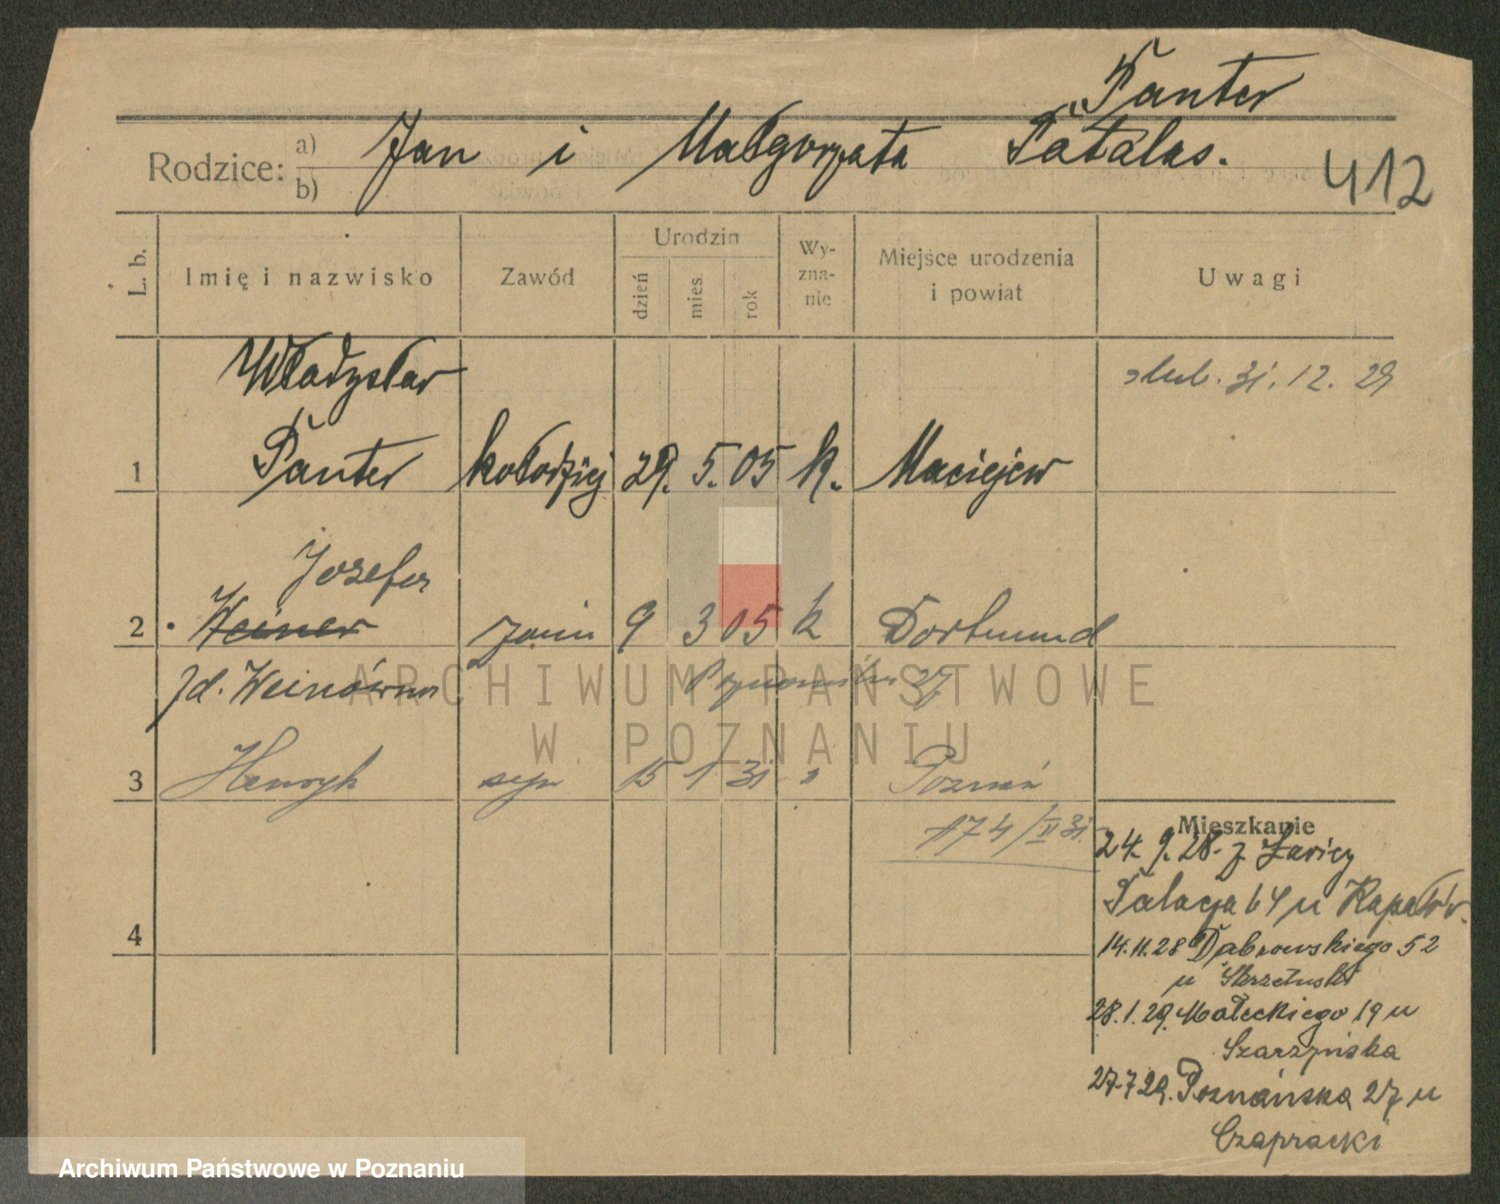 Panter
Rodzice: a) b) Jan i Małgorzata Patalas.
412
L. b. Imię i nazwisko Zawód Urodzin dzień mies. rok Wy-zna-nie Miejsce urodzenia i powiat Uwagi
Władysław
ślub. 31. 12. 29
1 Panter kołodziej 29. 5. 05 k. Maciejew
Józefa
2 Weiner 9 3 05 k Dortmund
Weinówna
Poznańska 27
3 Henryk syn 15 1 31 " Poznań
174/II 31.
Mieszkanie
24. 9. 28. z
4
Palacja 64 u
14.11.28 Dąbrowskiego 52
u Skrzetuski
28.1.29. Małeckiego 19 u
Szarzyńska
27.7 29. Poznańska 27 u
Czapracki
ARCHIWUM PAŃSTWOWE
W POZNANIU
Archiwum Państwowe w Poznaniu